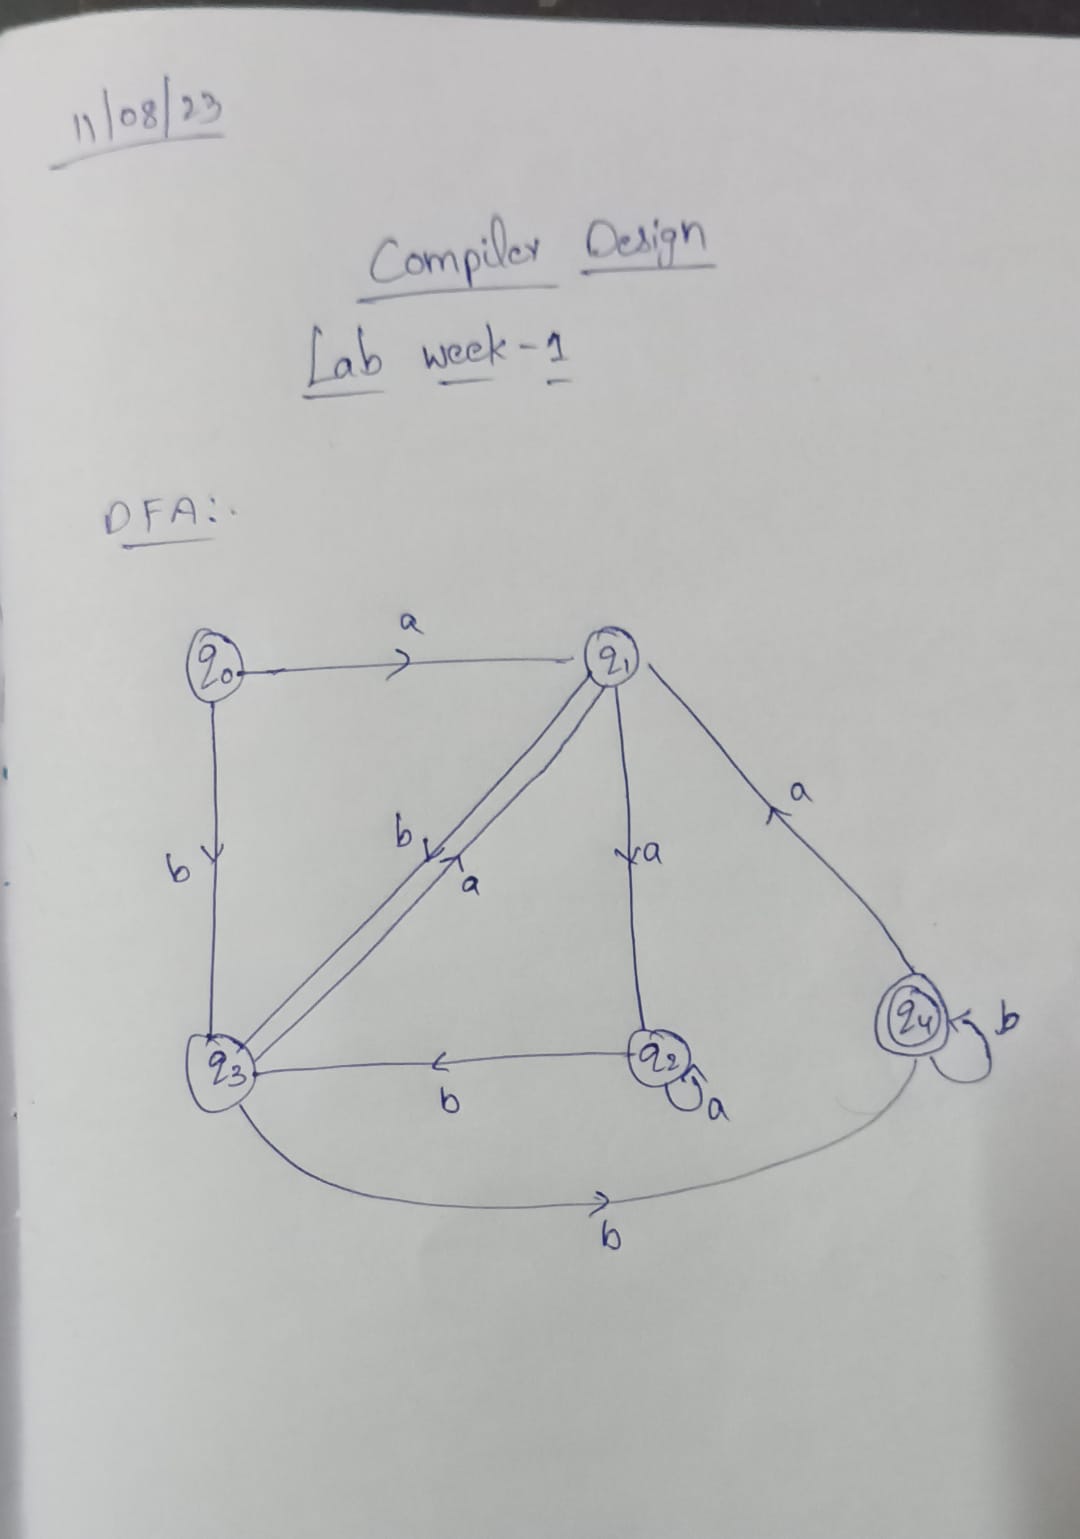 11/08/23
Compiler Design
Lab week-1
DFA:.
a
q0
q1
a
b
b
a
a
q4
b
q3
q2
b
a
b